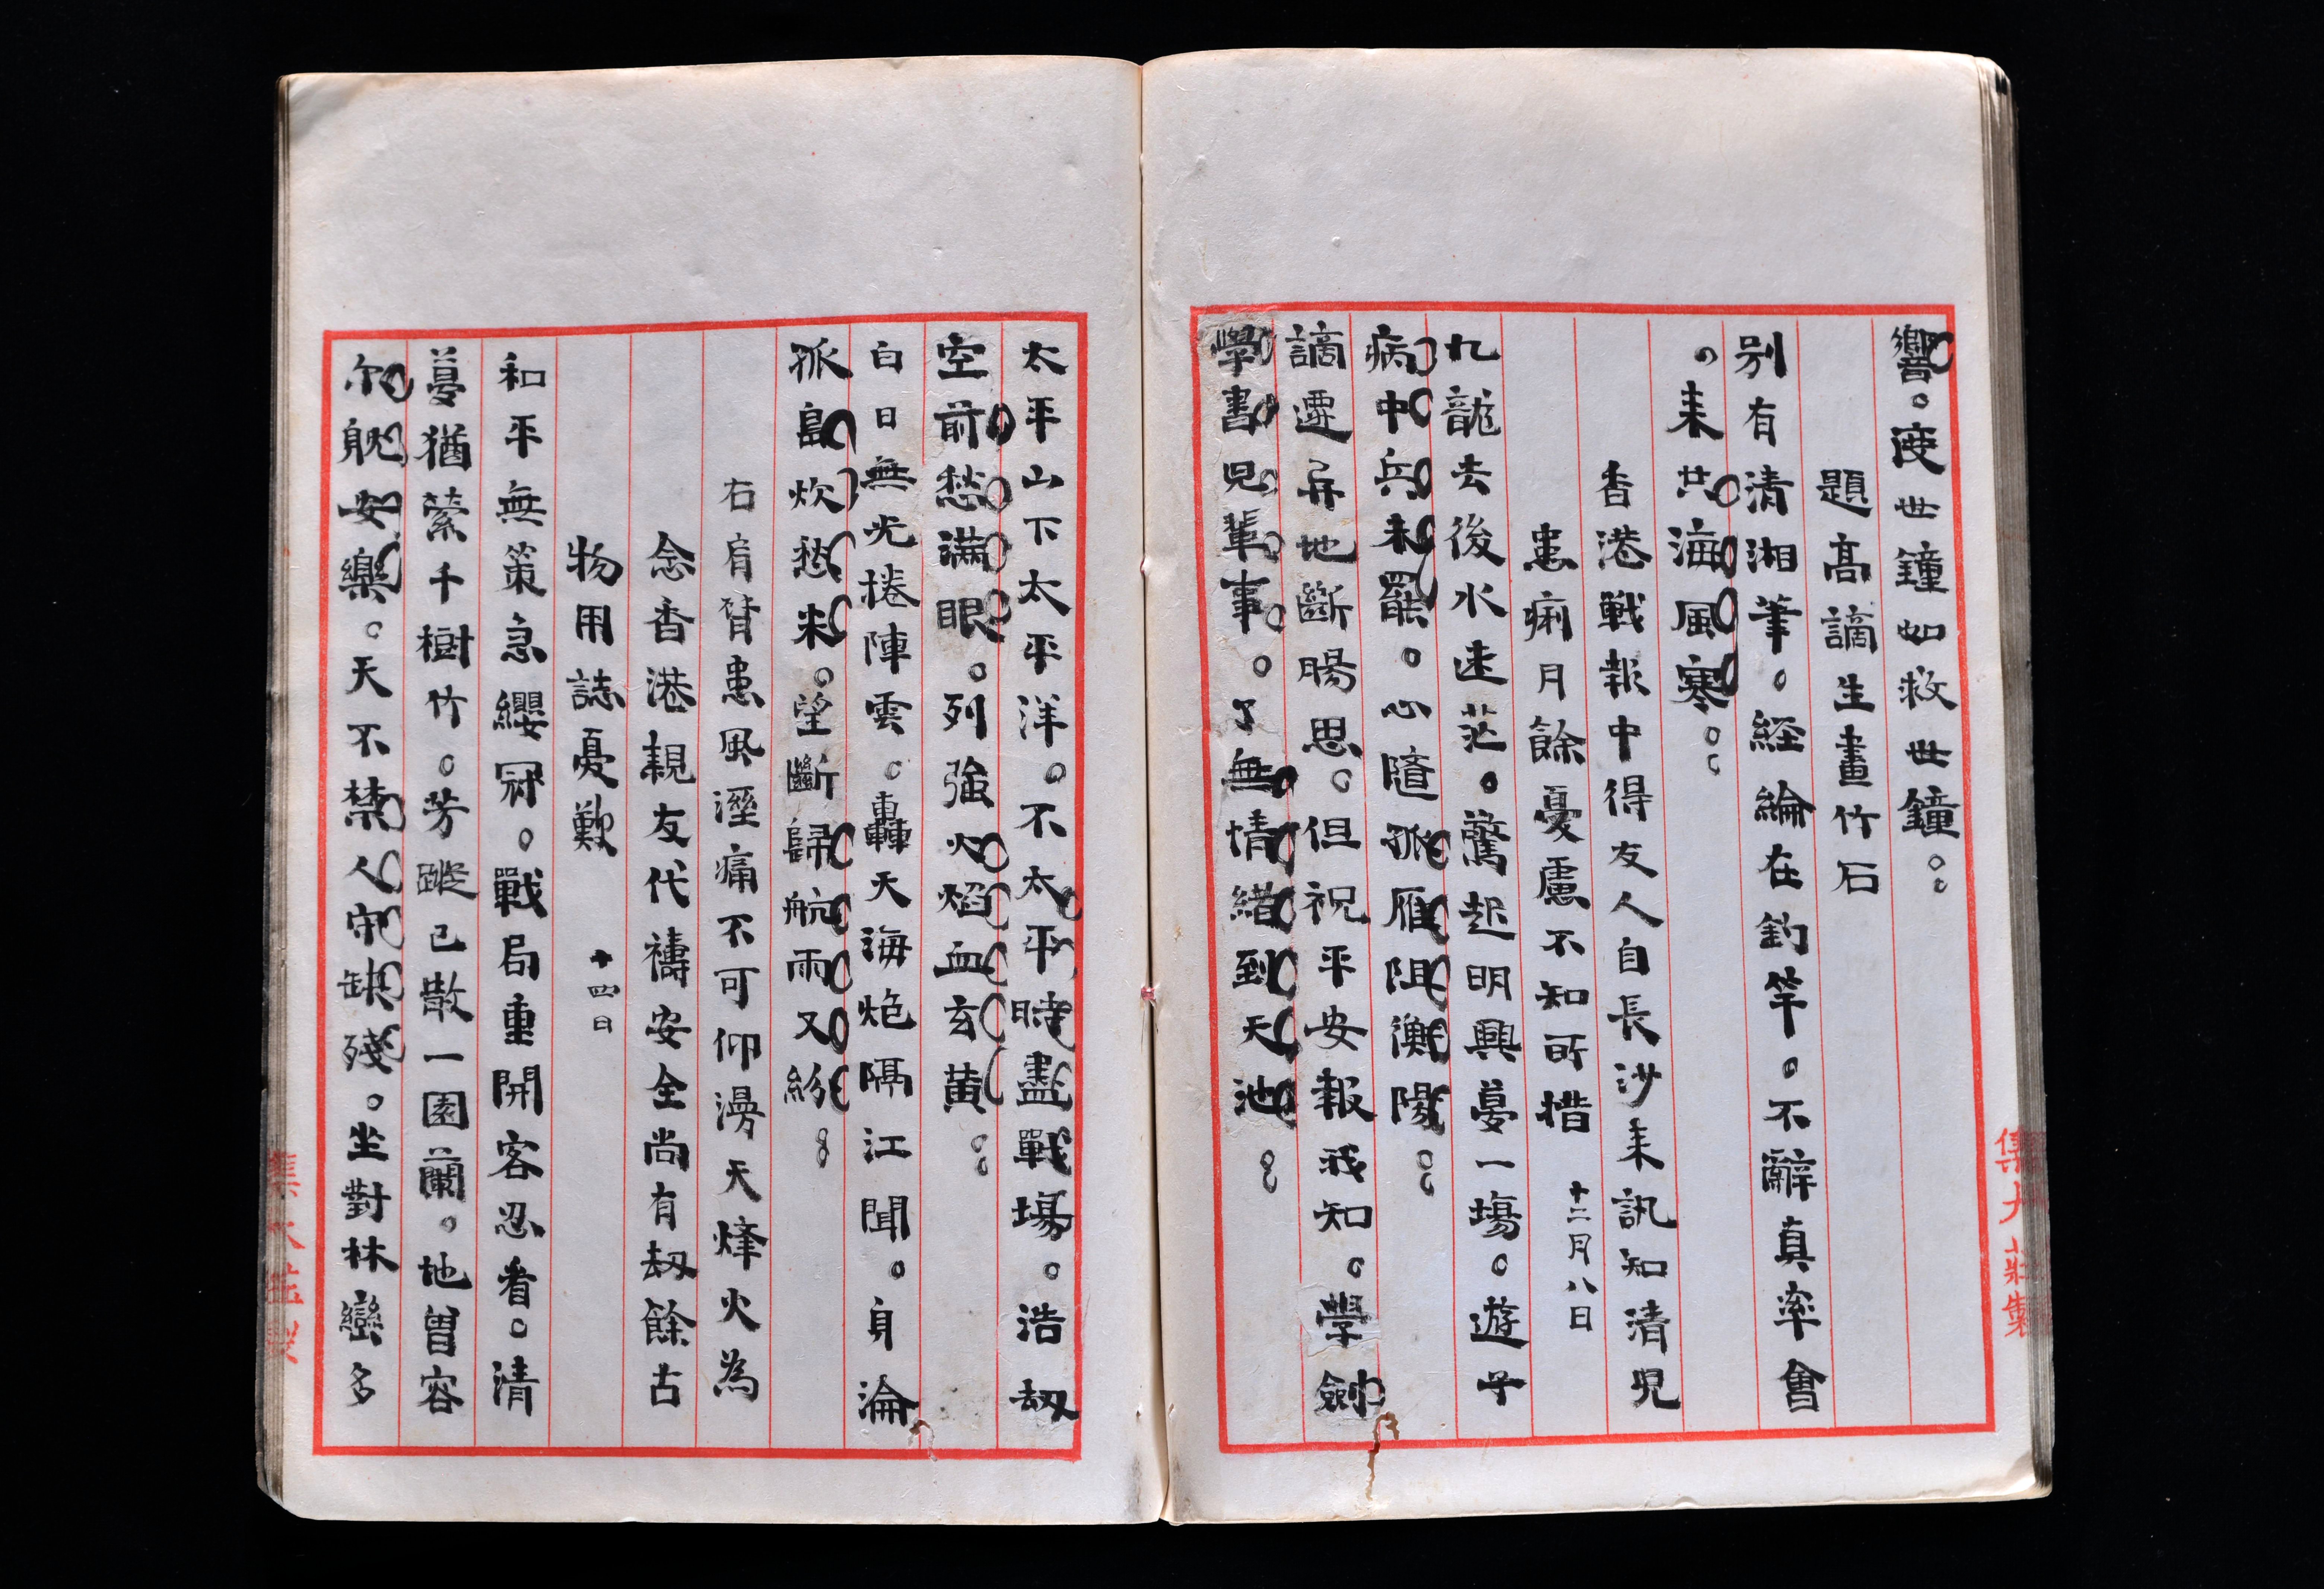 響。度世鐘如救世鐘。
題高謫生畫竹石
別有清湘筆。經綸在釣竿。不辭真率會
。来共海風寒。
香港戰報中得友人自長沙来訊知清兒
患痢月餘憂慮不知所措 十二月八日
九龍去後水迷茫。驚起明興夢一場。遊子
病中兵未罷。心隨孤雁阻衡陽。
謫遷異地斷腸思。但祝平安報我知。學劍
學書兒輩事。了無情緒到天池。
太平山下太平洋。不太平時盡戰場。浩劫
空前愁滿眼。列強火焰血玄黃。
白日無光捲陣雲。轟天海炮隔江聞。身淪
孤島炊愁米。望斷歸航雨又紛。
右肩臂患風溼痛不可仰漫天烽火為
念香港親友代禱安全尚有劫餘古
物用誌憂歎 十四日
和平無策急纓冠。戰局重開客忍看。清
夢猶縈千樹竹。芳蹤已散一園蘭。地曾容
尔躭安樂。天不禁人守缺殘。坐對林巒多
集大莊製